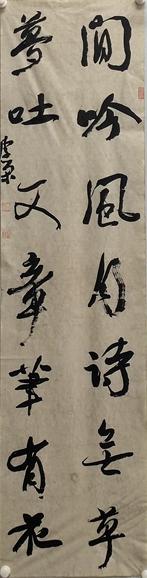 閒吟風月詩無草
夢吐文章筆有花